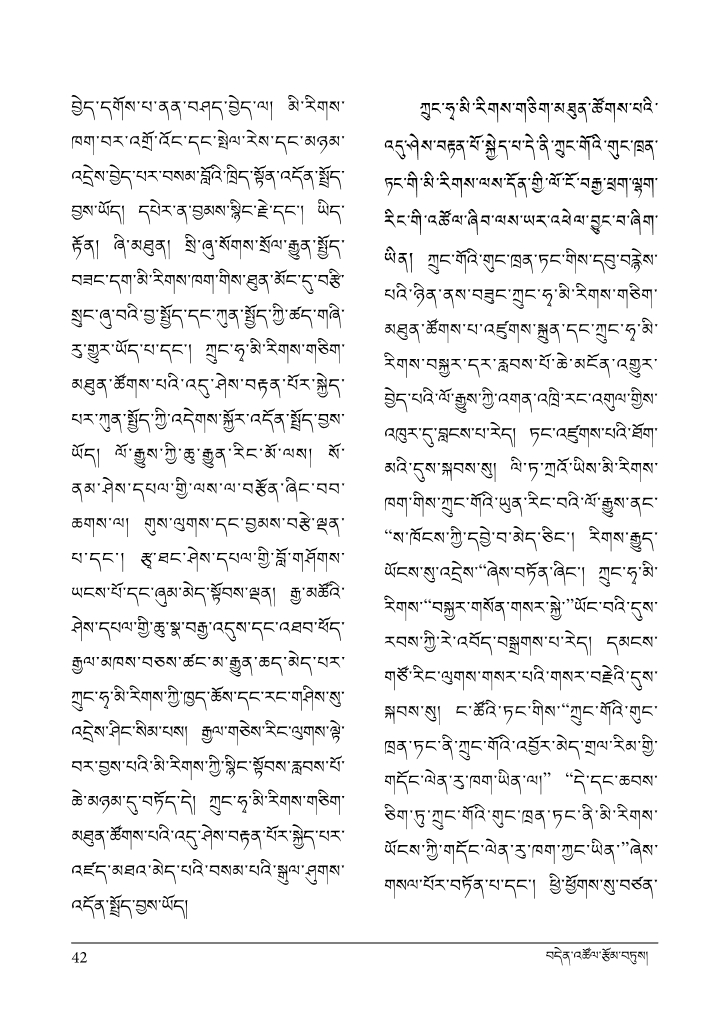 བྱེད་དགོས་པ་ནན་བཤད་བྱེད་ལ། མི་རིགས་
ཁག་བར་འགྲོ་འོང་དང་སྤེལ་རེས་དང་མཉམ་
འདྲེས་བྱེད་པར་བསམ་བློའི་ཁྲིད་སྟོན་འདོན་སྤྲོད་
བྱས་ཡོད། དཔེར་ན་བྱམས་སྙིང་རྗེ་དང་། ཡིད་
རྟོན། ཞི་མཐུན། སྲི་ཞུ་སོགས་སྲོལ་རྒྱུན་སྤྱོད་
བཟང་དག་མི་རིགས་ཁག་གིས་ཐུན་མོང་དུ་བརྩི་
སྲུང་ཞུ་བའི་བྱ་སྤྱོད་དང་ཀུན་སྤྱོད་ཀྱི་ཚད་གཞི་
རུ་གྱུར་ཡོད་པ་དང་། ཀྲུང་ཧྭ་མི་རིགས་གཅིག་
མཐུན་ཚོགས་པའི་འདུ་ཤེས་བརྟན་པོར་སྐྱེད་
པར་ཀུན་སྤྱོད་ཀྱི་འདེགས་སྐྱོར་འདོན་སྤྲོད་བྱས་
ཡོད། ལོ་རྒྱུས་ཀྱི་ཆུ་རྒྱུན་རིང་མོ་ལས། སོ་
ནམ་ཤེས་དཔལ་གྱི་ལས་ལ་བརྩོན་ཞིང་བབ་
ཆགས་ལ། གུས་ལུགས་དང་བྱམས་བརྩེ་ལྡན་
པ་དང་། རྩྭ་ཐང་ཤེས་དཔལ་གྱི་བློ་གཤོགས་
ཡངས་པོ་དང་ཞུམ་མེད་སྟོབས་ལྡན། རྒྱ་མཚོའི་
ཤེས་དཔལ་གྱི་ཆུ་སྣ་བརྒྱ་འདུས་དང་འཐབ་ཕོད་
རྒྱལ་མཁས་བཅས་ཚང་མ་རྒྱུན་ཆད་མེད་པར་
ཀྲུང་ཧྭ་མི་རིགས་ཀྱི་ཁྱད་ཆོས་དང་རང་གཤིས་སུ་
འདྲེས་ཤིང་སིམ་པས། རྒྱལ་གཅེས་རིང་ལུགས་ལྟེ་
བར་བྱས་པའི་མི་རིགས་ཀྱི་སྙིང་སྟོབས་རླབས་པོ་
ཆེ་མཉམ་དུ་བཏོད་དེ། ཀྲུང་ཧྭ་མི་རིགས་གཅིག་
མཐུན་ཚོགས་པའི་འདུ་ཤེས་བརྟན་པོར་སྐྱེད་པར་
འཛད་མཐའ་མེད་པའི་བསམ་པའི་སྒུལ་ཤུགས་
འདོན་སྤྲོད་བྱས་ཡོད།
ཀྲུང་ཧྭ་མི་རིགས་གཅིག་མཐུན་ཚོགས་པའི་
འདུ་ཤེས་བརྟན་པོ་སྐྱེད་པ་དེ་ནི་ཀྲུང་གོའི་གུང་ཁྲན་
ཏང་གི་མི་རིགས་ལས་དོན་གྱི་ལོ་ངོ་བརྒྱ་ཕྲག་ལྷག་
རིང་གི་འཚོལ་ཞིབ་ལས་ཡར་འཕེལ་བྱུང་བ་ཞིག་
ཡིན། ཀྲུང་གོའི་གུང་ཁྲན་ཏང་གིས་དབུ་བརྙེས་
པའི་ཉིན་ནས་བཟུང་ཀྲུང་ཧྭ་མི་རིགས་གཅིག་
མཐུན་ཚོགས་པ་འཛུགས་སྐྲུན་དང་ཀྲུང་ཧྭ་མི་
རིགས་བསྐྱར་དར་རླབས་པོ་ཆེ་མངོན་འགྱུར་
བྱེད་པའི་ལོ་རྒྱུས་ཀྱི་འགན་འཁྲི་རང་འགུལ་གྱིས་
འཁུར་དུ་བླངས་པ་རེད། ཏང་འཛུགས་པའི་ཐོག་
མའི་དུས་སྐབས་སུ། ལི་ཏ་ཀྲའོ་ཡིས་མི་རིགས་
ཁག་གིས་ཀྲུང་གོའི་ཡུན་རིང་བའི་ལོ་རྒྱུས་ནང་
“ས་ཁོངས་ཀྱི་དབྱེ་བ་མེད་ཅིང་། རིགས་རྒྱུད་
ཡོངས་སུ་འདྲེས་“ཞེས་བཏོན་ཞིང་། ཀྲུང་ཧྭ་མི་
རིགས་“བསྐྱར་གསོན་གསར་སྐྱེ་”ཡོང་བའི་དུས་
རབས་ཀྱི་རེ་འབོད་བསྒྲགས་པ་རེད། དམངས་
གཙོ་རིང་ལུགས་གསར་པའི་གསར་བརྗེའི་དུས་
སྐབས་སུ། ང་ཚོའི་ཏང་གིས་“ཀྲུང་གོའི་གུང་
ཁྲན་ཏང་ནི་ཀྲུང་གོའི་འབྱོར་མེད་གྲལ་རིམ་གྱི་
གདོང་ལེན་རུ་ཁག་ཡིན་ལ།” “དེ་དང་ཆབས་
ཅིག་ཏུ་ཀྲུང་གོའི་གུང་ཁྲན་ཏང་ནི་མི་རིགས་
ཡོངས་ཀྱི་གདོང་ལེན་རུ་ཁག་ཀྱང་ཡིན་”ཞེས་
གསལ་པོར་བཏོན་པ་དང་། ཕྱི་ཕྱོགས་སུ་བཙན་
42
བདེན་འཚོལ་རྩོམ་བཏུས།